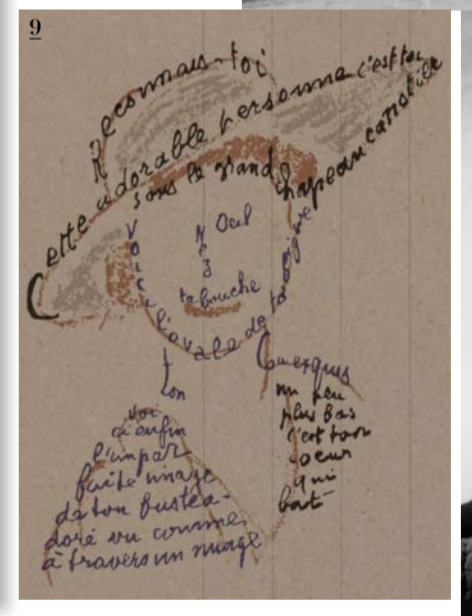 9
Reconnais-toi
Cette adorable personne c'est toi
sous le grand chapeau canotier
Oeil
Nez
ta bouche
Voici l'ovale de ta figure
ton
Cou exquis
voi
ci enfin
l'impar
faite image
de ton buste a-
doré vu comme
à travers un nuage
un peu
plus bas
c'est ton
coeur
qui
bat